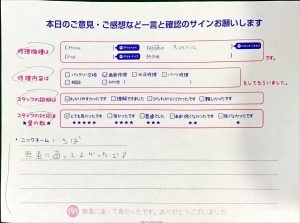 本日のご意見・ご感想など一言と確認のサインお願いします
修理機種は
iPhone
Android Xperia
iPad
その他
です。
修理内容は
バッテリー交換
画面修理
水没修理
パーツ修理
その他
をしてもらいました。
スタッフの説明は
わかりやすかったです
理解できました
少しわかりにくかったです
難しかったです
スタッフの対応は
★星の数★
とても良かったです
良かったです
普通でした
あまり良くなかったです
良くなかったです
★★★★★
★★★★
★★★
★★
★
ニックネーム: ちば
無事に直ってよかったです
無事に直って良かったです。ありがとうございました